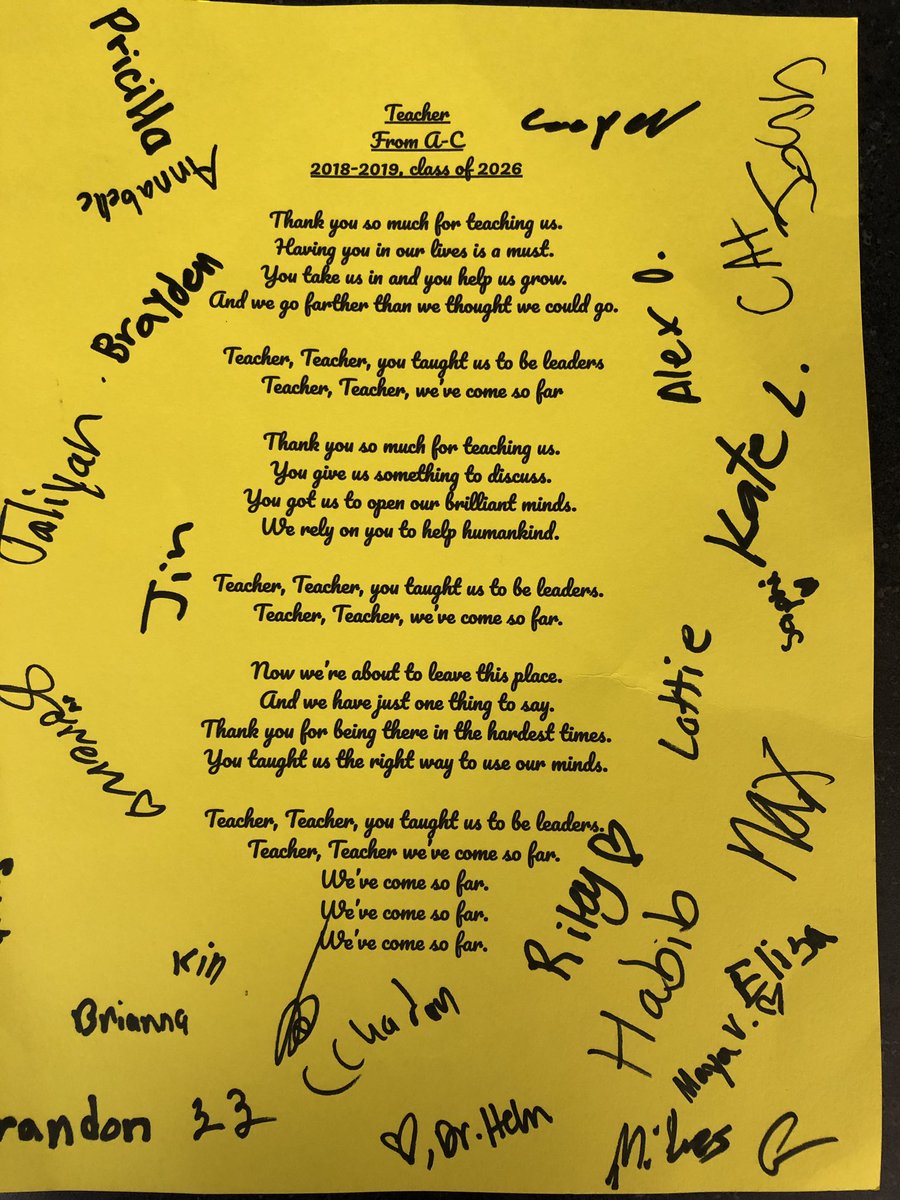 Pricilla
Annabelle
Cooper
Josh
Teacher
From A-C
2018-2019, class of 2026
Thank you so much for teaching us.
Having you in our lives is a must.
You take us in and you help us grow.
And we go farther than we thought we could go.
Brayden
Alex D.
CAH
Teacher, Teacher, you taught us to be leaders
Teacher, Teacher, we've come so far
Kate L.
Thank you so much for teaching us.
You give us something to discuss.
You got us to open our brilliant minds.
We rely on you to help humankind.
Jaliyah
Jin
Teacher, Teacher, you taught us to be leaders.
Teacher, Teacher, we've come so far.
Lottie
Now we're about to leave this place.
And we have just one thing to say.
Thank you for being there in the hardest times.
You taught us the right way to use our minds.
Max
Teacher, Teacher, you taught us to be leaders.
Teacher, Teacher we've come so far.
We've come so far.
We've come so far.
We've come so far.
Riley
Habib
Eliza
Kin
Brianna
Maya V.
randon 33
Dr. Helm